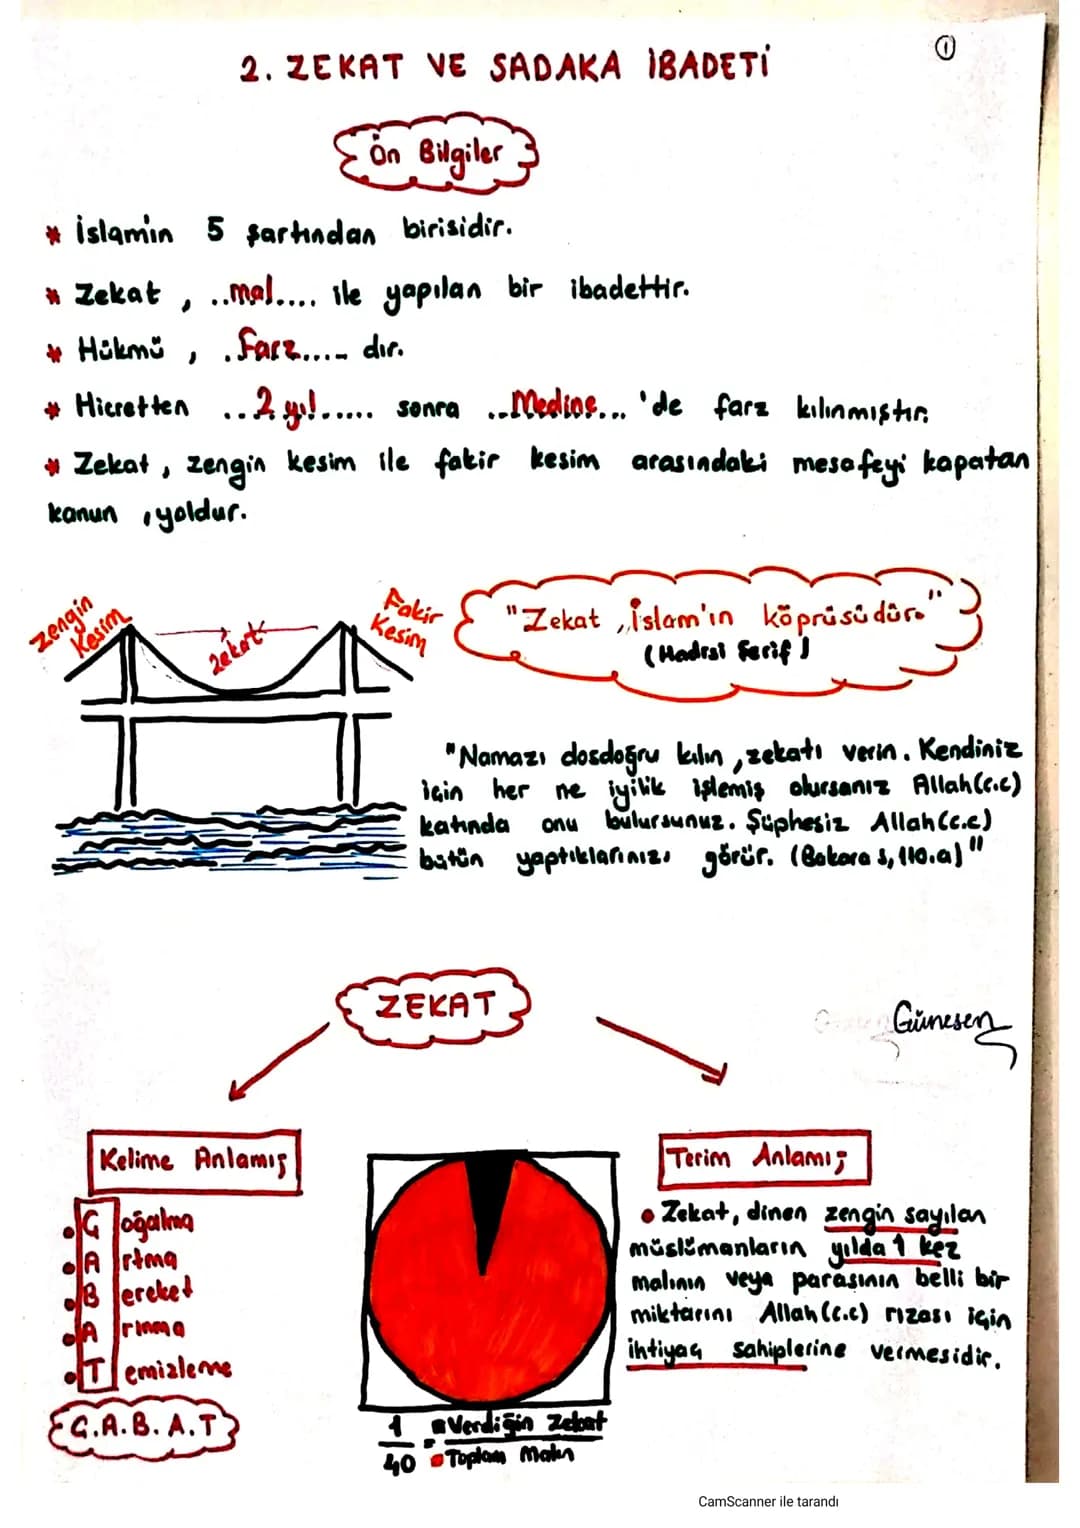 ①
2. ZEKAT VE SADAKA İBADETİ
Ön Bilgiler
* İslamın 5 şartından birisidir.
* Zekat, ..mal.... ile yapılan bir ibadettir.
* Hükmü, .farz..... dır.
* Hicretten ..2 yıl...... sonra ..Medine... 'de farz kılınmıştır.
* Zekat, zengin kesim ile fakir kesim arasındaki mesafeyi kapatan
kanun, yoldur.
zengin
Kesim
zekat
Fakir
Kesim
"Zekat, İslam'ın köprüsüdür."
(Hadisi Şerif)
"Namazı dosdoğru kılın, zekatı verin. Kendiniz
için her ne iyilik işlemiş olursanız Allah(c.c)
katında onu bulursunuz. Şüphesiz Allah(c.c)
bütün yaptıklarınızı görür. (Bakara s, 110.a)"
ZEKAT
Günesen
Kelime Anlamı;
• Ç oğalma
• A rtma
• B ereket
• A rınma
• T emizleme
Ç.A.B.A.T
1/40 = Verdiğin Zekat
Toplam Malın
Terim Anlamı;
• Zekat, dinen zengin sayılan
müslümanların yılda 1 kez
malının veya parasının belli bir
miktarını Allah(c.c) rızası için
ihtiyaç sahiplerine vermesidir.
CamScanner ile tarandı